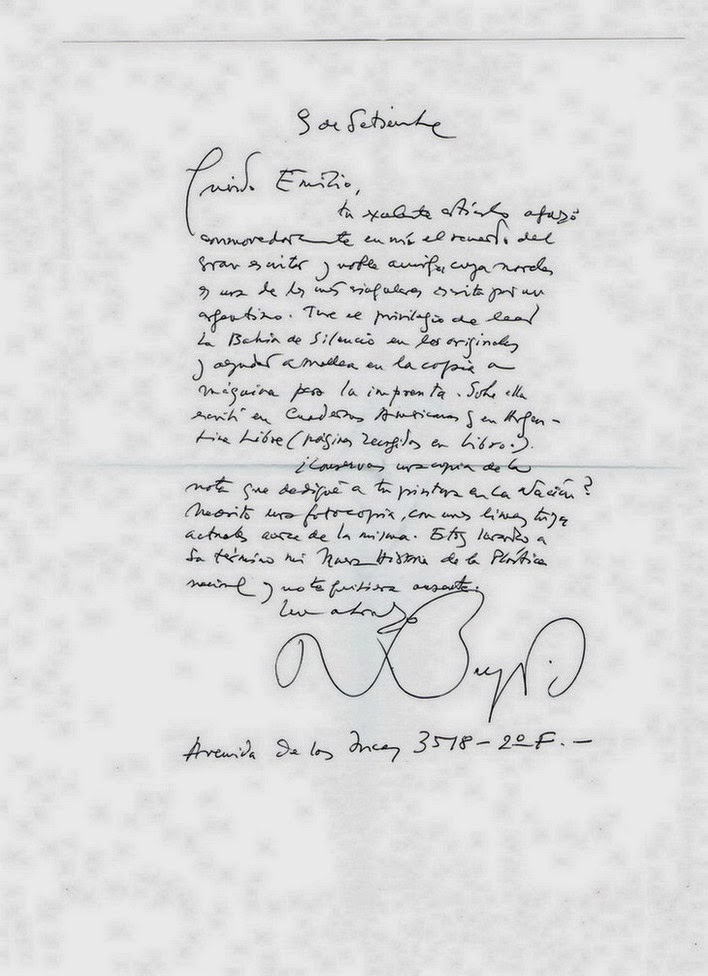 9 de Setiembre
Querido Emilio,
tu excelente artículo aguzó
conmovedoramente en mí el recuerdo del
gran escritor y noble amigo cuya
es una de las más singulares escrita por un
argentino. Tuve el privilegio de leer
La Bahía de Silencio en los originales
y ayudar a Mallea en la copia a
máquina para la imprenta. Sobre ella
escribí en Cuadernos Americanos y en Argen-
tina Libre (páginas recogidas en libro.).
¿Conservas una copia de la
nota que dediqué a tu pintura en La Nación?
Necesito una fotocopia, con unas líneas tuyas
actuales acerca de la misma. Estoy llevando a
su término mi Nueva Historia de la Plástica
nacional y no te quisiera ausente.
Un abrazo
Avenida de los Incas 3518 - 2º F. -